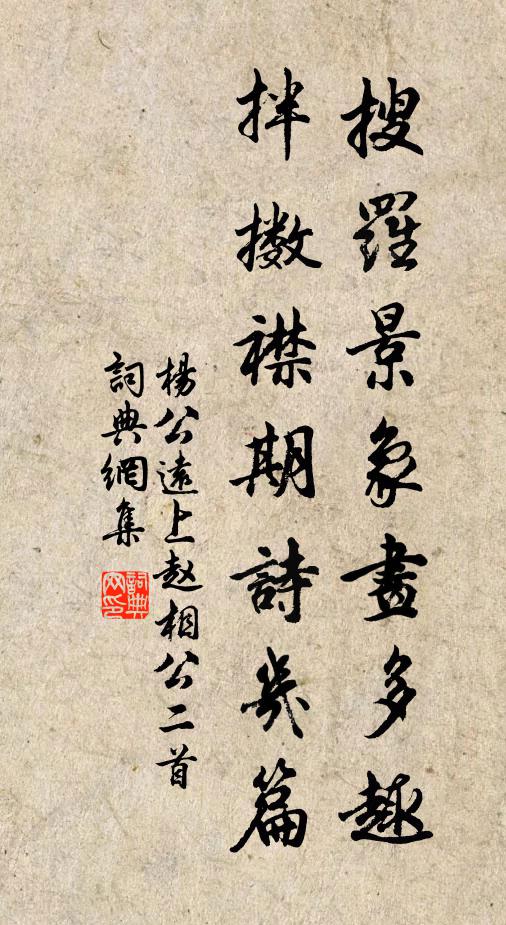 搜羅景象畫多趣
拌擻襟期詩幾篇
楊公遠上赵相公二首
詞典網集
詞典網印